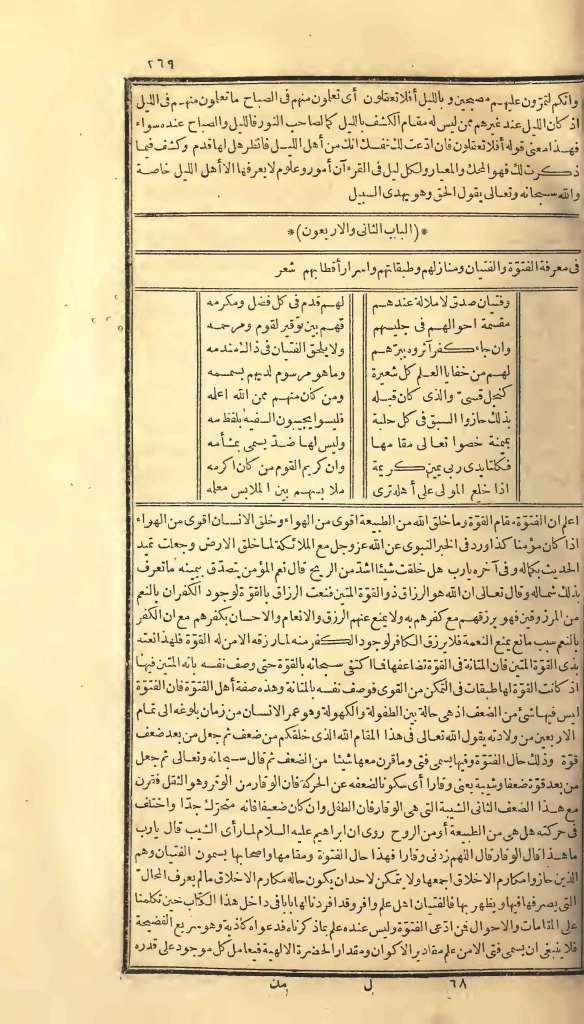 ٢٦٩
وانكم لتمرّون عليهم مصبحين وبالليل أفلا تعقلون أى تعلمون منهم فى الصباح ما تعلمون منهم فى الليل
اذ كان الليل عند غيرهم ممن ليس له مقام الكشف بالليل كما لصاحب النور فالليل والصباح عنده سواء
فهذا معنى قوله أفلا تعقلون فان ادعت لك نفسك انك من أهل الليل فانظر هل لها قدم وكشف فيما
ذكرت لك فهو المحك والمعيار ولكل ليل فى القرءآن أمور وعلوم لا يعرفها الا أهل الليل خاصة
والله سبحانه وتعالى يقول الحق وهو يهدى السبيل
*(الباب الثانى والاربعون)*
فى معرفة الفتوّة والفتيان ومنازلهم وطبقاتهم واسرار أقطابهم شعر
وفتيان صدق لا ملالة عندهم لهم قدم فى كل فضل ومكرمه
مقسمة احوالهم فى جليسهم فهم بين توقير لقوم ومرحمه
وان جاء كفر آثروه ببرّهم ولا يلحق الفتيان فى ذالك مندمه
لهم من خفايا العلم كل شعيرة وما هو مرسوم لديهم بسمه
كنجل قسىّ والذى كان قبله ومن كان منهم ممن الله اعله
بذلك حازوا السبق فى كل حلبة فليسوا يجيبون السفيه بلفظ مه
بميمنة خصوا تعالى مقامها وليس لها ضدّ يسمى بمشأمه
فكلتا يدى ربى يمين كريمة وان كريم القوم من كان اكرمه
اذا خلع المولى على أهله ترى ملابسهم بين الملابس معلمه
اعلم ان الفتوّة مقام القوّة وما خلق الله من الطبيعة اقوى من الهواء وخلق الانسان اقوى من الهواء
اذا كان مؤمنا كذا ورد فى الخبر النبوى عن الله عز وجل مع الملائكة لما خلق الارض وجعلت تميد
الحديث بكماله وفى آخره يا رب هل خلقت شيئا اشدّ من الريح قال نعم المؤمن يتصدّق بيمينه ما تعرف
بذلك شماله وقال تعالى ان الله هو الرزاق ذو القوّة المتين فنعت الرزاق بالقوّة لوجود الكفران بالنعم
من المرزوقين فهو يرزقهم مع كفرهم به ولا يمنع عنهم الرزق والانعام والاحسان بكفرهم مع ان الكفر
بالنعم سبب مانع يمنع النعمة فلا يرزق الكافر لوجود الكفر منه لما رزقه الا من له القوّة فلهذا نعته
بذى القوّة المتين فان المتانة فى القوّة تضاعفها فما اكتفى سبحانه بالقوّة حتى وصف نفسه بانه المتين فيها
اذ كانت القوّة لها طبقات فى التمكن من القوى فوصف نفسه بالمتانة وهذه صفة أهل الفتوّة فان الفتوّة
ليس فيها شئ من الضعف اذ هى حالة بين الطفولة والكهولة وهو عمر الانسان من زمان بلوغه الى تمام
الاربعين من ولادته يقول الله تعالى فى هذا المقام الله الذى خلقكم من ضعف ثم جعل من بعد ضعف
قوّة وذلك حال الفتوّة وفيها يسمى فتى وما قرن معها شيئا من الضعف ثم قال سبحانه وتعالى ثم جعل
من بعد قوّة ضعفا وشيبة يعنى وقارا أى سكونا لضعفه عن الحركة فان الوقار من الوقر وهو الثقل فقرن
مع هذا الضعف الثانى الشيبة التى هى الوقار فان الطفل وان كان ضعيفا فانه متحرّك جدّا واختلف
فى حركته هل هى من الطبيعة أو من الروح روى ان ابراهيم عليه السلام لما رأى الشيب قال يا رب
ما هذا قال الوقار قال اللهم زدنى وقارا فهذا حال الفتوّة ومقامها واصحابها يسمون الفتيان وهم
الذين حازوا مكارم الاخلاق اجمعها ولا يتمكن لاحد ان يكون حاله مكارم الاخلاق ما لم يعرف المحالّ
التى يصرفها فيها ويظهر بها فالفتيان اهل علم وافر وقد افردنا لها بابا فى داخل هذا الكتاب حين تكلمنا
على المقامات والاحوال فمن ادّعى الفتوّة وليس عنده علم بما ذكرناه فدعواه كاذبة وهو سريع الفضيحة
فلا ينبغى ان يسمى فتى الا من علم مقادير الاكوان ومقدار الحضرة الالهية فيعامل كل موجود على قدره
٦٨ ل مك